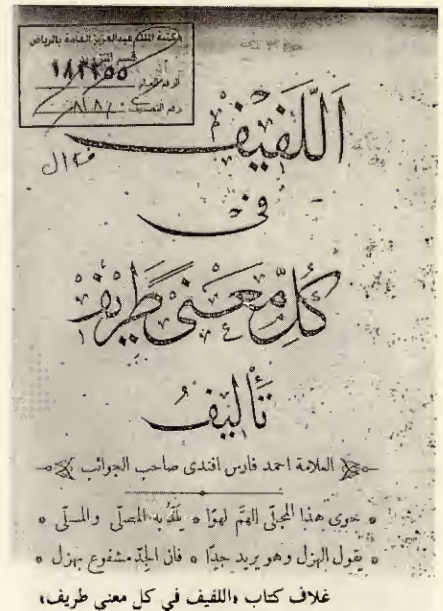 مكتبة الملك عبدالعزيز العامة بالرياض
١٨٣٢٥٥
اللَّفِيف
في
كُلِّ مَعْنًى طَرِيف
تَأْلِيفُ
العلامة احمد فارس افندى صاحب الجوائب
حوى هذا المجلّى الهمّ لهوًا ۞ يلَذُّ به المصلّى والمسلّى
يقول الهزل وهو يريد جدًا ۞ فان الجدّ مشفوع بهزل
غلاف كتاب «اللفيف في كل معنى طريف»